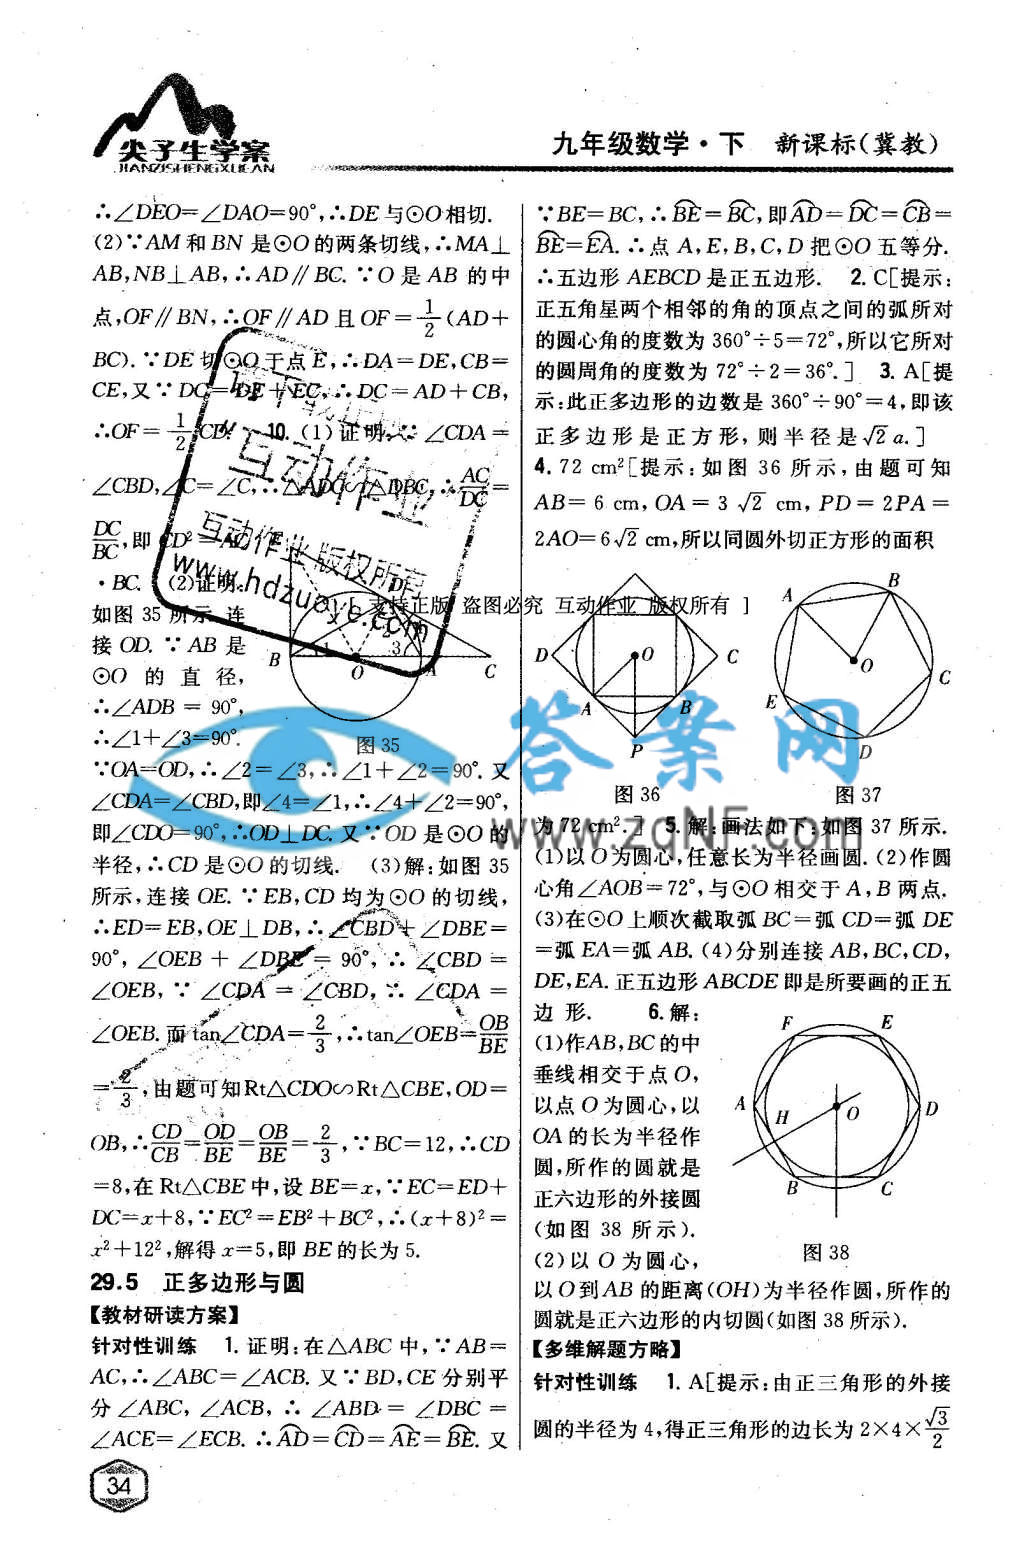 尖子生学案
JIANZISHENGXUEAN
九年级数学·下 新课标(冀教)
∴∠DEO=∠DAO=90°,∴DE与⊙O相切.
(2)∵AM和BN是⊙O的两条切线,∴MA⊥
AB,NB⊥AB,∴AD∥BC.∵O是AB的中
点,OF∥BN,∴OF∥AD且OF=1/2(AD+
BC).∵DE切⊙O于点E,∴DA=DE,CB=
CE,又∵DC=DE+EC,∴DC=AD+CB,
∴OF=1/2CD. 10.(1)证明:∵∠CDA=
∠CBD,∠C=∠C,∴△ADC∽△DBC,∴AC/DC=
DC/BC,即CD²=AC
·BC. (2)证明:
如图35所示,连
接OD.∵AB是
⊙O的直径,
∴∠ADB=90°,
∴∠1+∠3=90°.
B O A C D 3
图35
∵OA=OD,∴∠2=∠3,∴∠1+∠2=90°.又
∠CDA=∠CBD,即∠4=∠1,∴∠4+∠2=90°,
即∠CDO=90°,∴OD⊥DC.又∵OD是⊙O的
半径,∴CD是⊙O的切线. (3)解:如图35
所示,连接OE.∵EB,CD均为⊙O的切线,
∴ED=EB,OE⊥DB,∴∠CBD+∠DBE=
90°,∠OEB+∠DBE=90°,∴∠CBD=
∠OEB,∵∠CDA=∠CBD,∴∠CDA=
∠OEB.而tan∠CDA=2/3,∴tan∠OEB=OB/BE
=2/3,由题可知Rt△CDO∽Rt△CBE,OD=
OB,∴CD/CB=OD/BE=OB/BE=2/3,∵BC=12,∴CD
=8,在Rt△CBE中,设BE=x,∵EC=ED+
DC=x+8,∵EC²=EB²+BC²,∴(x+8)²=
x²+12²,解得x=5,即BE的长为5.
29.5 正多边形与圆
【教材研读方案】
针对性训练 1.证明:在△ABC中,∵AB=
AC,∴∠ABC=∠ACB.又∵BD,CE分别平
分∠ABC,∠ACB,∴∠ABD=∠DBC=
∠ACE=∠ECB.∴A͡D=C͡D=A͡E=B͡E.又
34
∵BE=BC,∴B͡E=B͡C,即A͡D=D͡C=C͡B=
B͡E=E͡A.∴点A,E,B,C,D把⊙O五等分.
∴五边形AEBCD是正五边形. 2.C[提示:
正五角星两个相邻的角的顶点之间的弧所对
的圆心角的度数为360°÷5=72°,所以它所对
的圆周角的度数为72°÷2=36°.] 3.A[提
示:此正多边形的边数是360°÷90°=4,即该
正多边形是正方形,则半径是√2a.]
4.72 cm²[提示:如图36所示,由题可知
AB=6 cm,OA=3√2 cm,PD=2PA=
2AO=6√2 cm,所以同圆外切正方形的面积
D O C A B P
图36
A B O C E D
图37
为72 cm².] 5.解:画法如下:如图37所示.
(1)以O为圆心,任意长为半径画圆.(2)作圆
心角∠AOB=72°,与⊙O相交于A,B两点.
(3)在⊙O上顺次截取弧BC=弧CD=弧DE
=弧EA=弧AB.(4)分别连接AB,BC,CD,
DE,EA.正五边形ABCDE即是所要画的正五
边形. 6.解:
(1)作AB,BC的中
垂线相交于点O,
以点O为圆心,以
OA的长为半径作
圆,所作的圆就是
正六边形的外接圆
(如图38所示).
(2)以O为圆心,
F E A H O D B C
图38
以O到AB的距离(OH)为半径作圆,所作的
圆就是正六边形的内切圆(如图38所示).
【多维解题方略】
针对性训练 1.A[提示:由正三角形的外接
圆的半径为4,得正三角形的边长为2×4×√3/2
互动作业
互动作业 版权所有
www.hdzuoye.com
[ 支持正版 盗图必究 互动作业 版权所有 ]
答案网
www.zqNF.com